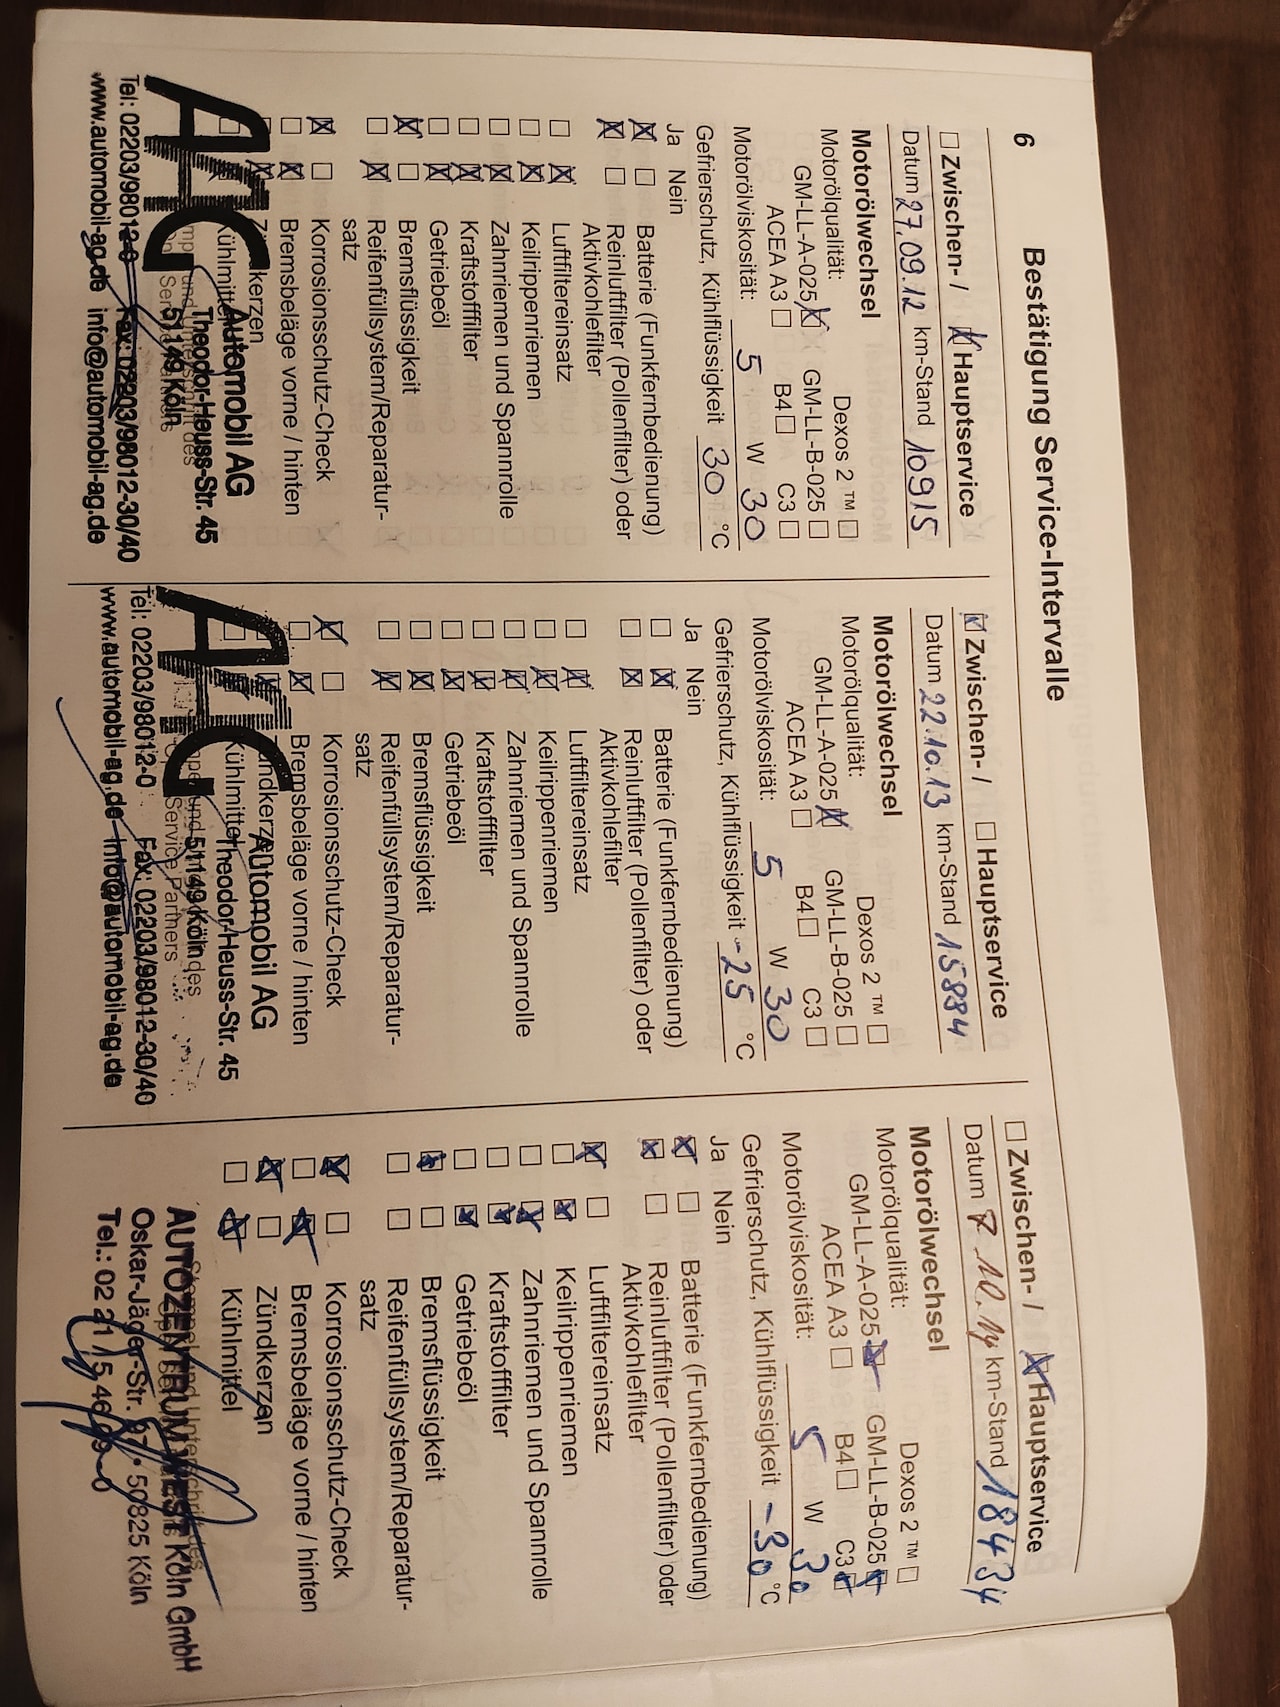 6
Bestätigung Service-Intervalle
Zwischen- / Hauptservice
Datum 27.09.12 km-Stand 10915
Motorölwechsel
Motorölqualität: Dexos 2 ™
GM-LL-A-025 GM-LL-B-025
ACEA A3 B4 C3
Motorölviskosität: 5 W 30
Gefrierschutz, Kühlflüssigkeit 30 °C
Ja Nein
Batterie (Funkfernbedienung)
Reinluftfilter (Pollenfilter) oder
Aktivkohlefilter
Luftfiltereinsatz
Keilrippenriemen
Zahnriemen und Spannrolle
Kraftstofffilter
Getriebeöl
Bremsflüssigkeit
Reifenfüllsystem/Reparatur-
satz
Korrosionsschutz-Check
Bremsbeläge vorne / hinten
AAG
Automobil AG
Theodor-Heuss-Str. 45
51149 Köln
Tel: 02203/98012-0 Fax: 02203/98012-30/40
www.automobil-ag.de info@automobil-ag.de
Zwischen- / Hauptservice
Datum 22.10.13 km-Stand 15884
Motorölwechsel
Motorölqualität: Dexos 2 ™
GM-LL-A-025 GM-LL-B-025
ACEA A3 B4 C3
Motorölviskosität: 5 W 30
Gefrierschutz, Kühlflüssigkeit -25 °C
Ja Nein
Batterie (Funkfernbedienung)
Reinluftfilter (Pollenfilter) oder
Aktivkohlefilter
Luftfiltereinsatz
Keilrippenriemen
Zahnriemen und Spannrolle
Kraftstofffilter
Getriebeöl
Bremsflüssigkeit
Reifenfüllsystem/Reparatur-
satz
Korrosionsschutz-Check
Bremsbeläge vorne / hinten
Zündkerzen
Kühlmittel
AAG
Automobil AG
Theodor-Heuss-Str. 45
51149 Köln
Service Partners
Tel: 02203/98012-0 Fax: 02203/98012-30/40
www.automobil-ag.de info@automobil-ag.de
Zwischen- / Hauptservice
Datum 10.14 km-Stand 18434
Motorölwechsel
Motorölqualität: Dexos 2 ™
GM-LL-A-025 GM-LL-B-025
ACEA A3 B4 C3
Motorölviskosität: 5 W 30
Gefrierschutz, Kühlflüssigkeit -30 °C
Ja Nein
Batterie (Funkfernbedienung)
Reinluftfilter (Pollenfilter) oder
Aktivkohlefilter
Luftfiltereinsatz
Keilrippenriemen
Zahnriemen und Spannrolle
Kraftstofffilter
Getriebeöl
Bremsflüssigkeit
Reifenfüllsystem/Reparatur-
satz
Korrosionsschutz-Check
Bremsbeläge vorne / hinten
Zündkerzen
Kühlmittel
AUTOZENTRUM WEST Köln GmbH
Oskar-Jäger-Str. • 50825 Köln
Tel.: 02 21 / 5 46 09-0